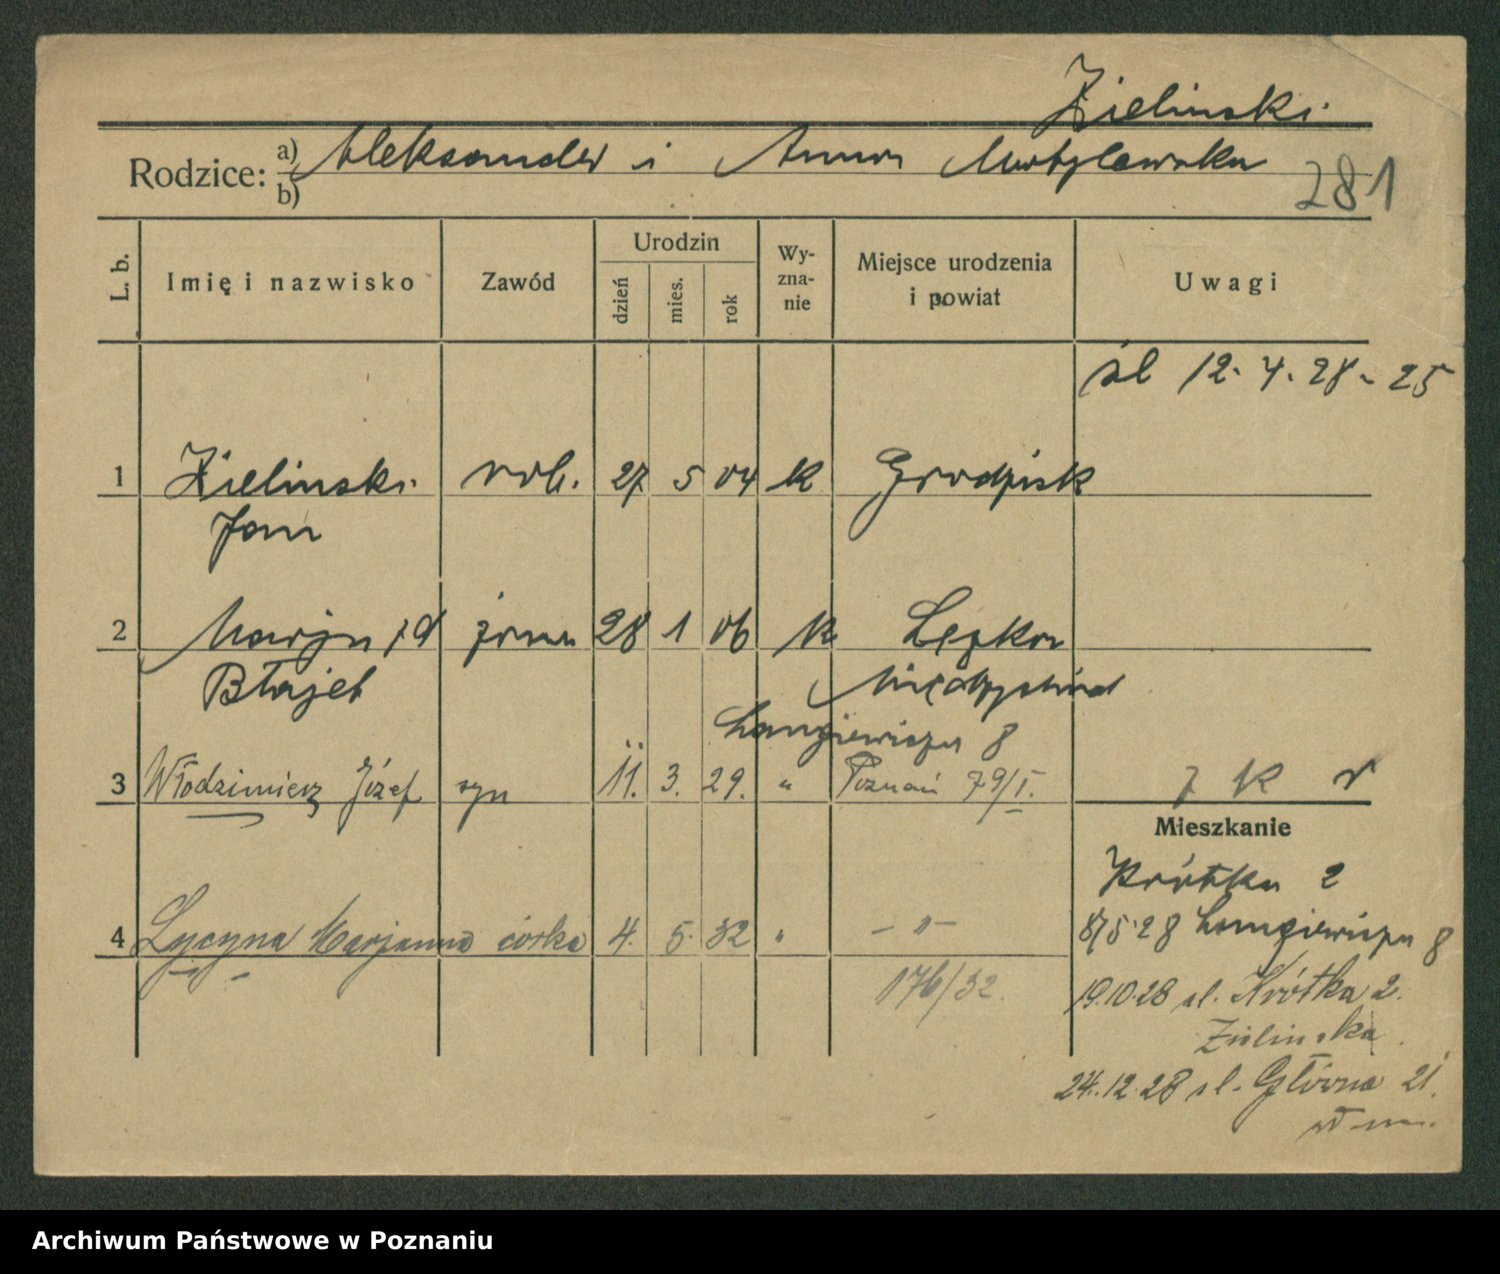 Zielinski
Rodzice: a) Aleksander i Anna Motylewska
b)
281
L. b.
Imię i nazwisko
Zawód
Urodzin
dzień
mies.
rok
Wy-
zna-
nie
Miejsce urodzenia
i powiat
Uwagi
śl 12. 4. 28 - 25
1 Zielinski rob. 27 5 04 k Grodzisk
Jan
2 Marja żona 28 1 06 k
Błajet
Langiewicza 8
3 Włodzimierz Józef syn 11. 3. 29. " Poznań 79/I.
Mieszkanie
Krótka 2
4 Lucyna Marjanna córka 4. 5. 32 " - " -
8/5 28 Langiewicza 8
176/32.
19.10.28 ul. Krótka 2.
Zielinska
24.12.28 ul. Główna 21.